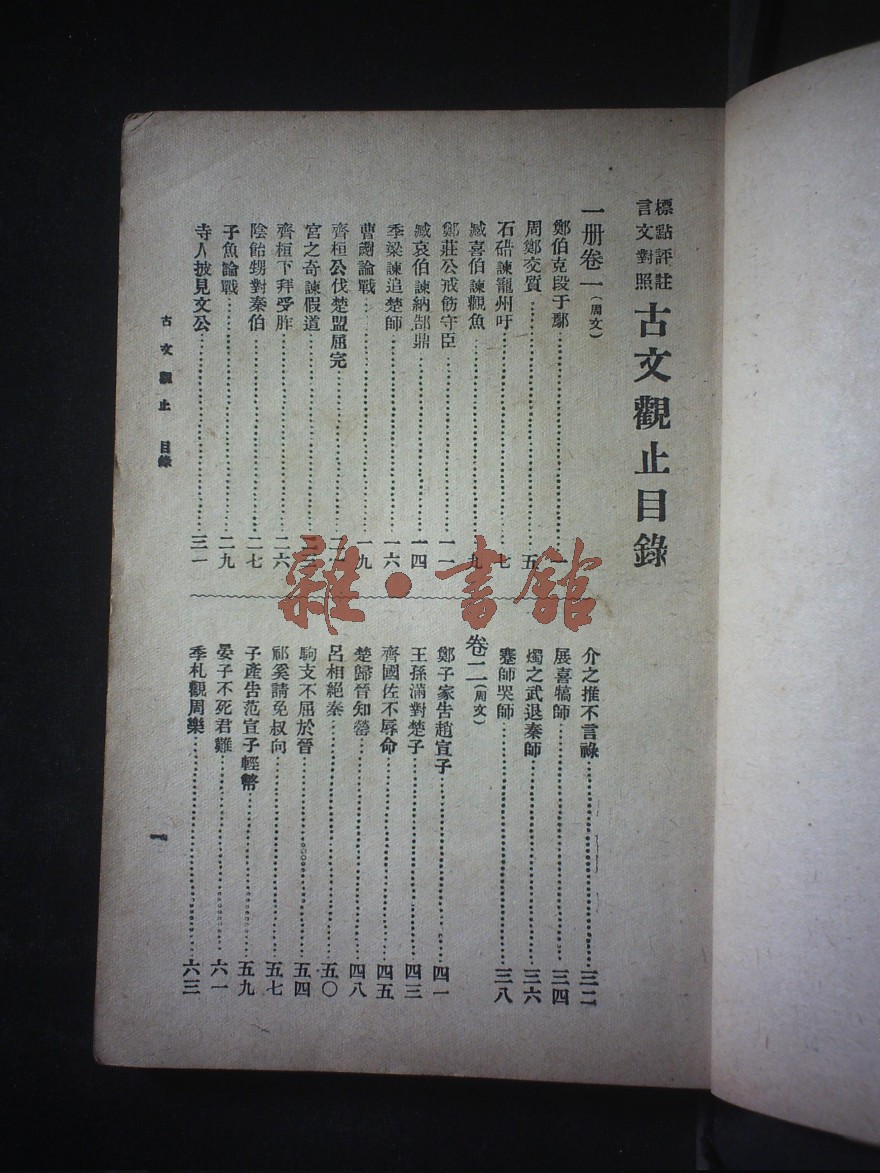 標點評註
言文對照
古文觀止目錄
一册卷一(周文)
鄭伯克段于鄢……一
周鄭交質……五
石碏諫寵州吁……七
臧喜伯諫觀魚……九
鄭莊公戒飭守臣……一一
臧哀伯諫納郜鼎……一四
季梁諫追楚師……一六
曹劌論戰……一九
齊桓公伐楚盟屈完……二一
宮之奇諫假道……二三
齊桓下拜受胙……二六
陰飴甥對秦伯……二七
子魚論戰……二九
寺人披見文公……三一
介之推不言祿……三二
展喜犒師……三四
燭之武退秦師……三六
蹇師哭師……三八
卷二(周文)
鄭子家告趙宣子……四一
王孫滿對楚子……四三
齊國佐不辱命……四五
楚歸晉知罃……四八
呂相絕秦……五〇
駒支不屈於晉……五四
祁奚請免叔向……五七
子產告范宣子輕幣……五九
晏子不死君難……六一
季札觀周樂……六三
古文觀止 目錄
一
雜·書館